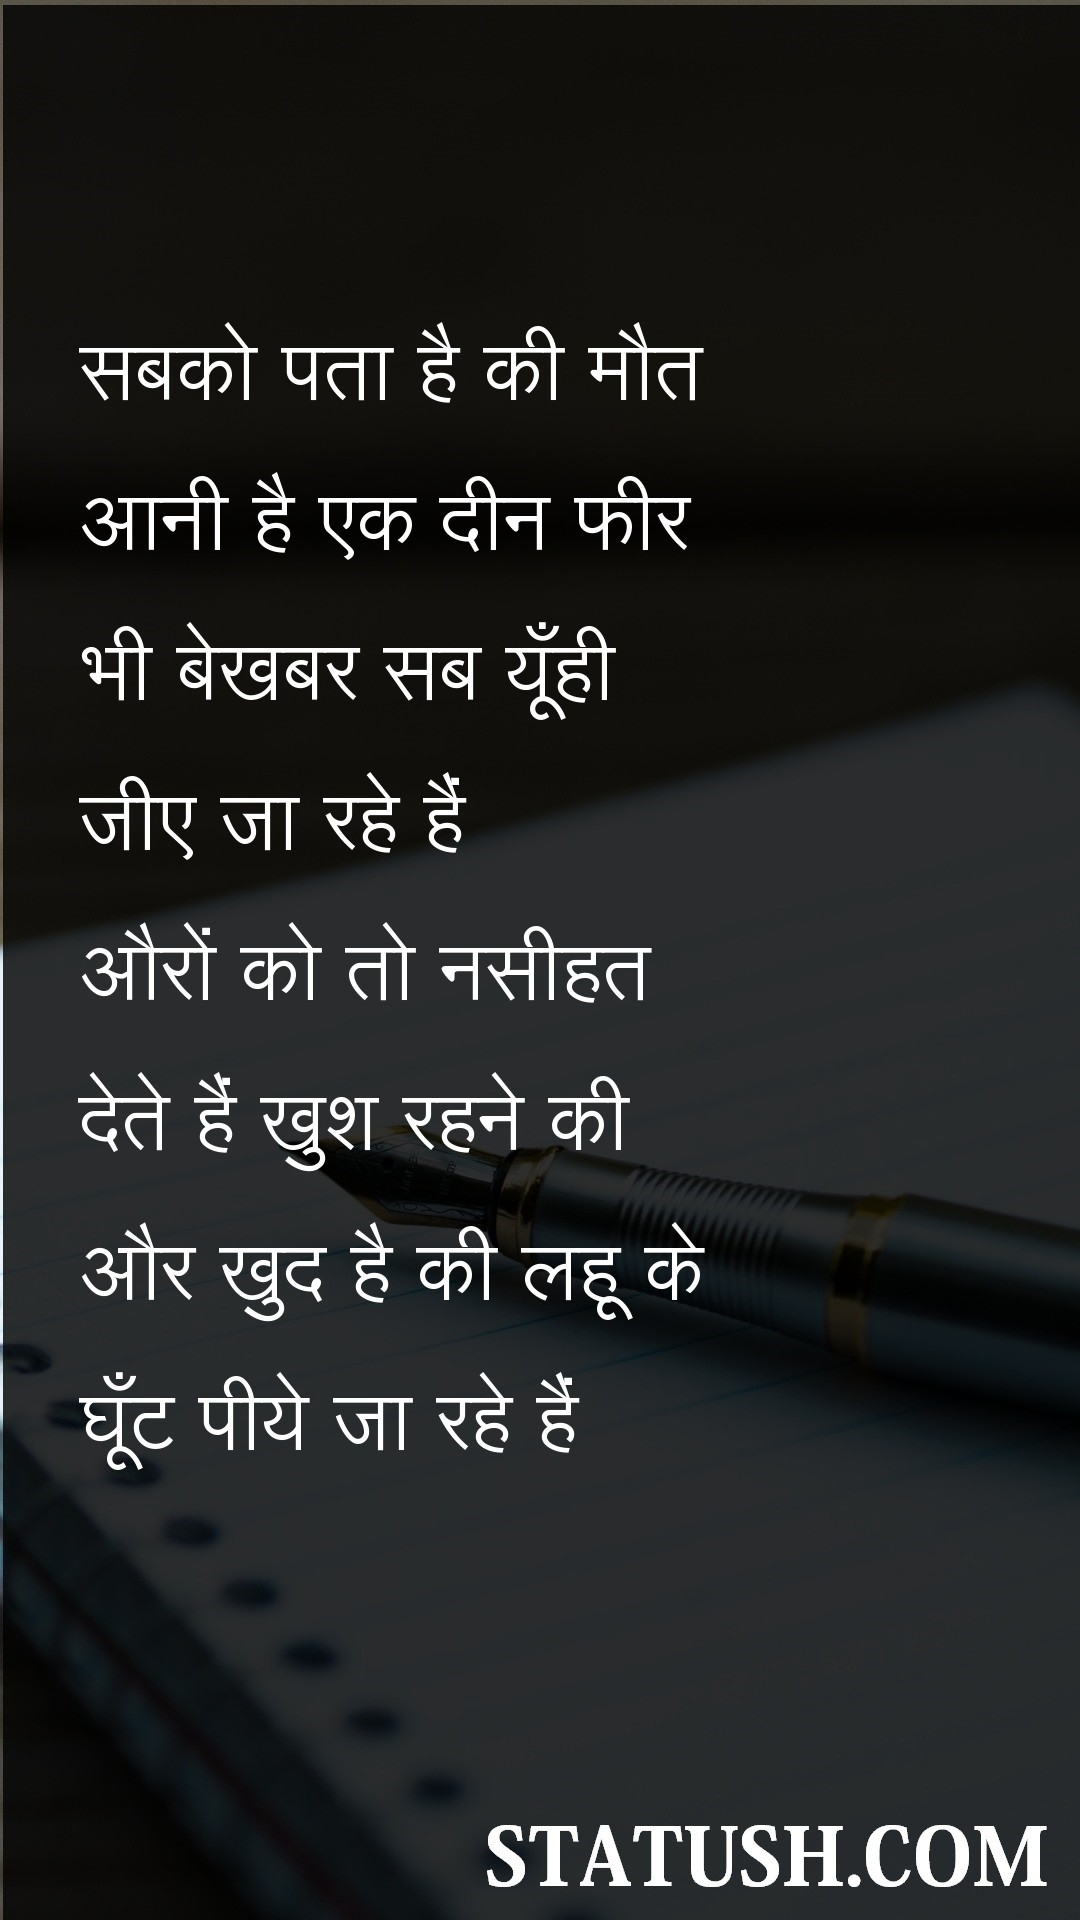 सबको पता है की मौत
आनी है एक दीन फीर
भी बेखबर सब यूँही
जीए जा रहे हैं
औरों को तो नसीहत
देते हैं खुश रहने की
और खुद है की लहू के
घूँट पीये जा रहे हैं
STATUSH.COM